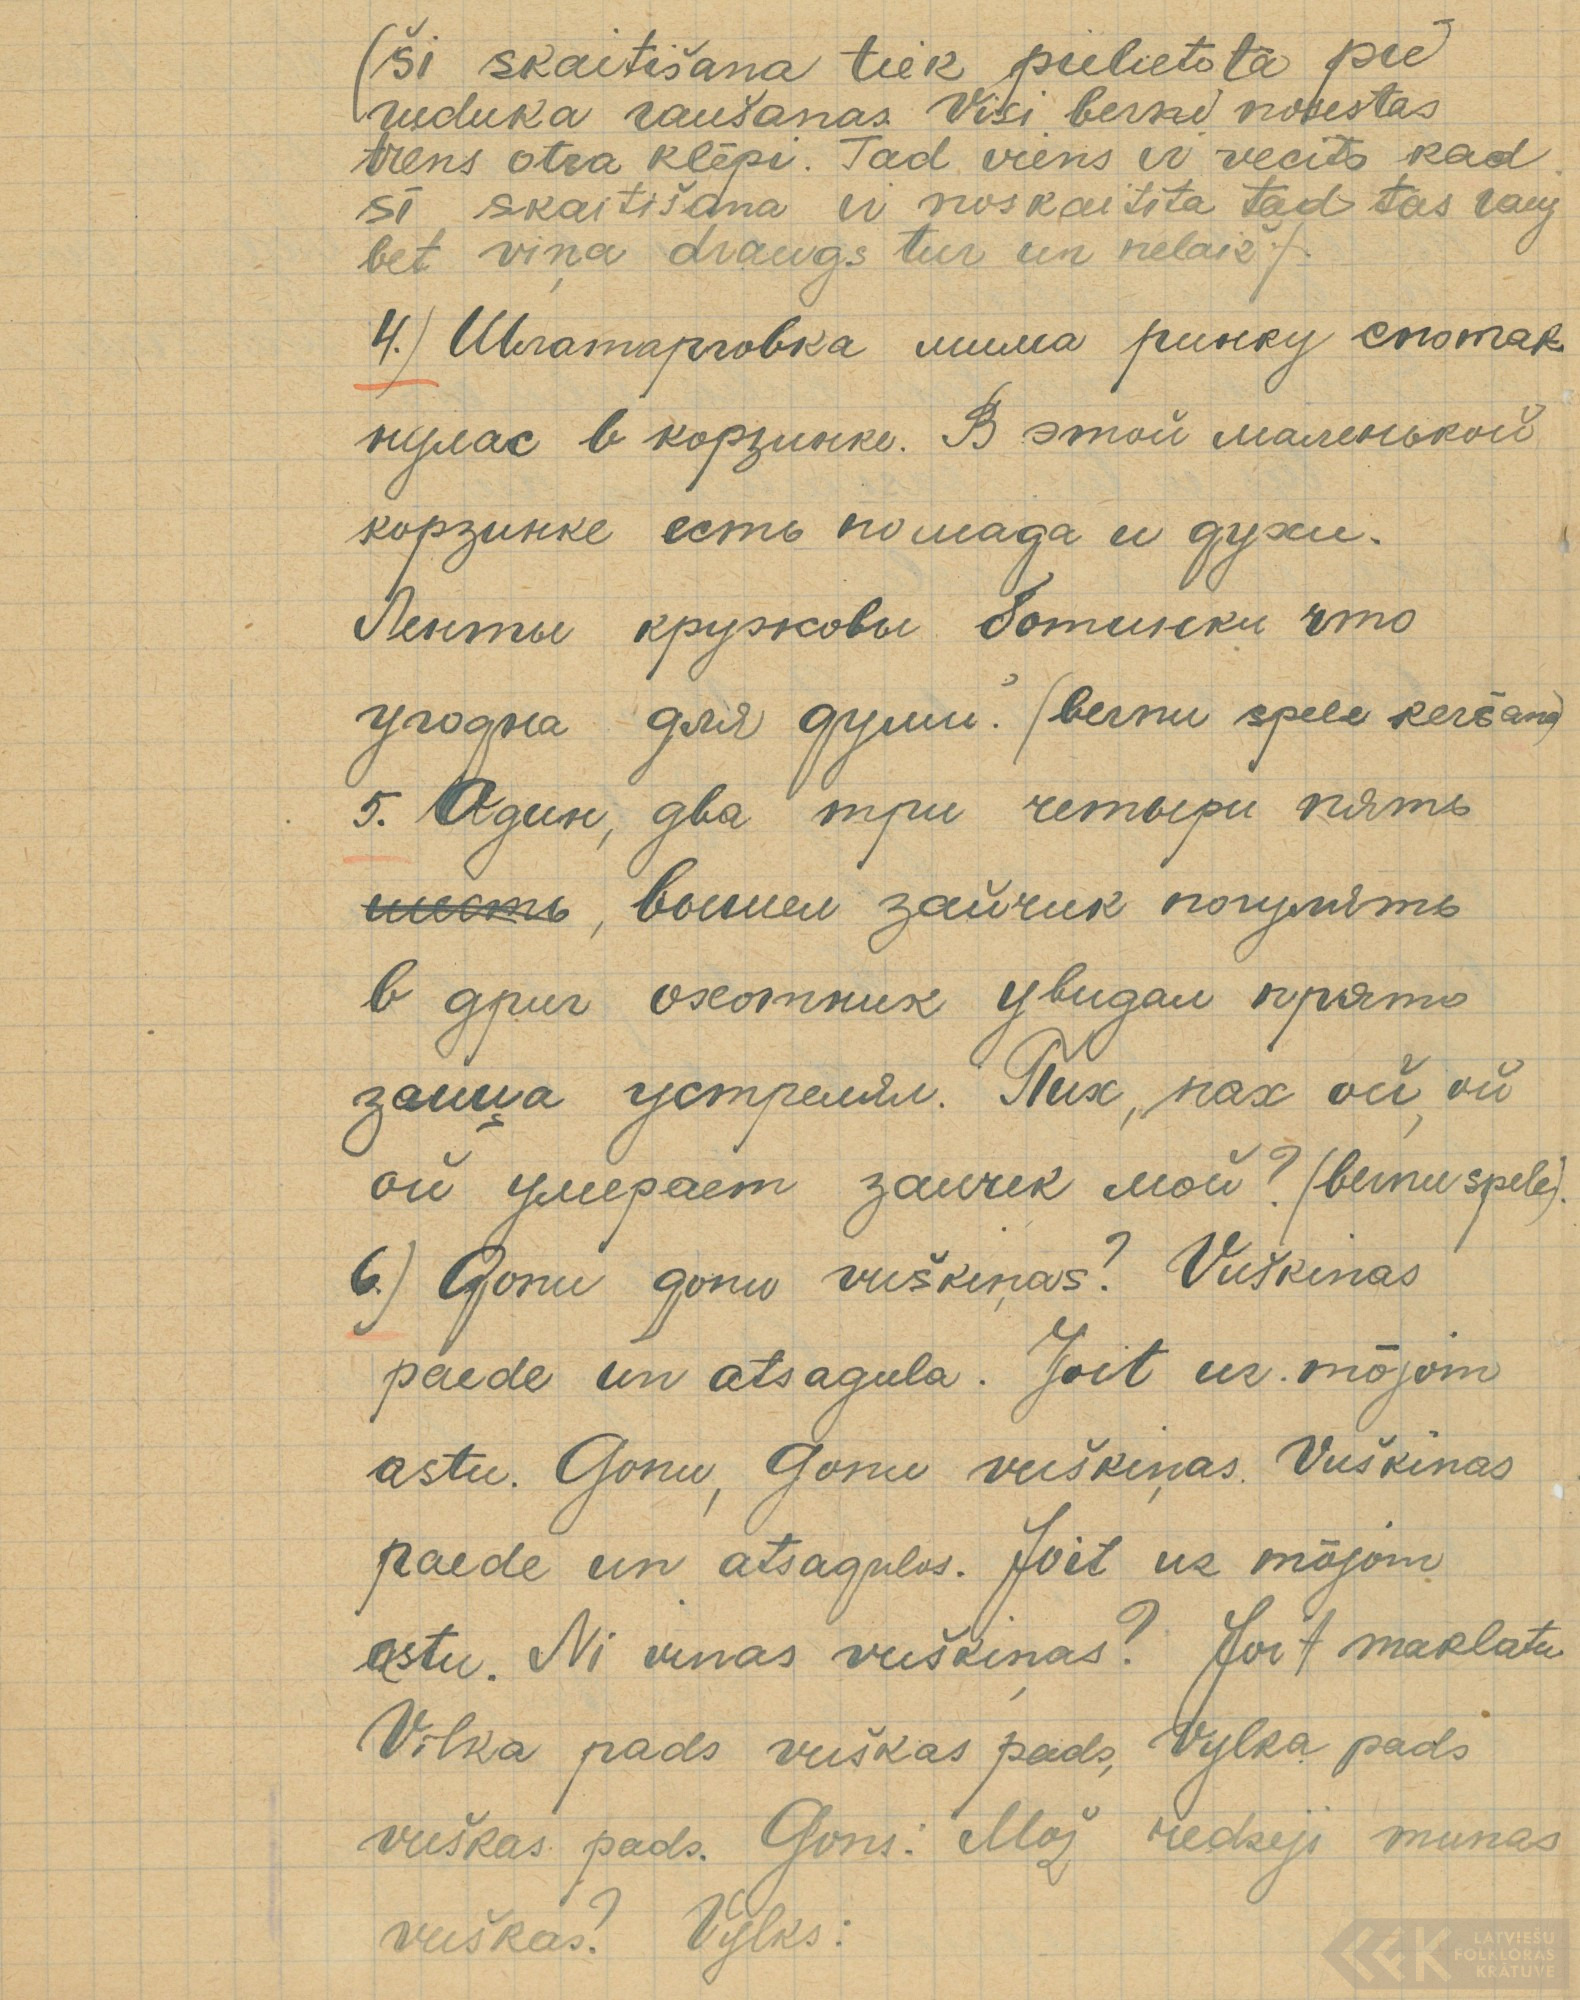 (ši skaitišana tiek pielietota pie
ruduka raušanas. Visi berni nosestas
viens otra klēpi. Tad viens ir vecits kad
šī skaitišana ir noskaitita tad tas rauj
bet viņa draugs tur un nelaiž).
4.) Шлатарговка мима ринку спотак
нулас в корзинке. В этой маленькой
корзинке есть помада и духи.
Ленты кружовы ботинки что
угодна для души. (berni spele keršana)
5. Адин, два три четыри пять
шесть, вышел зайчик погулять
в дриг охотник увидал прямо
заица устрелял. Пих, пах ой, ой
ой умерает заичек мой? (berni spele).
6.) Gonu gonu vuškiņas? Vuškinas
paede un atsagula. Joit uz mōjom
astu. Gonu, Gonu vuškiņas. Vuškinas
paede un atsagulos. Joit uz mōjom
astu. Ni vinas vuškiņas? Joit maklatu
Vilka pads vuškas pads, Vylka pads
vuškas pads. Gons: Mož redzeji munas
vuškas? Vylks:
LATVIEŠU
FOLKLORAS
KRĀTUVE